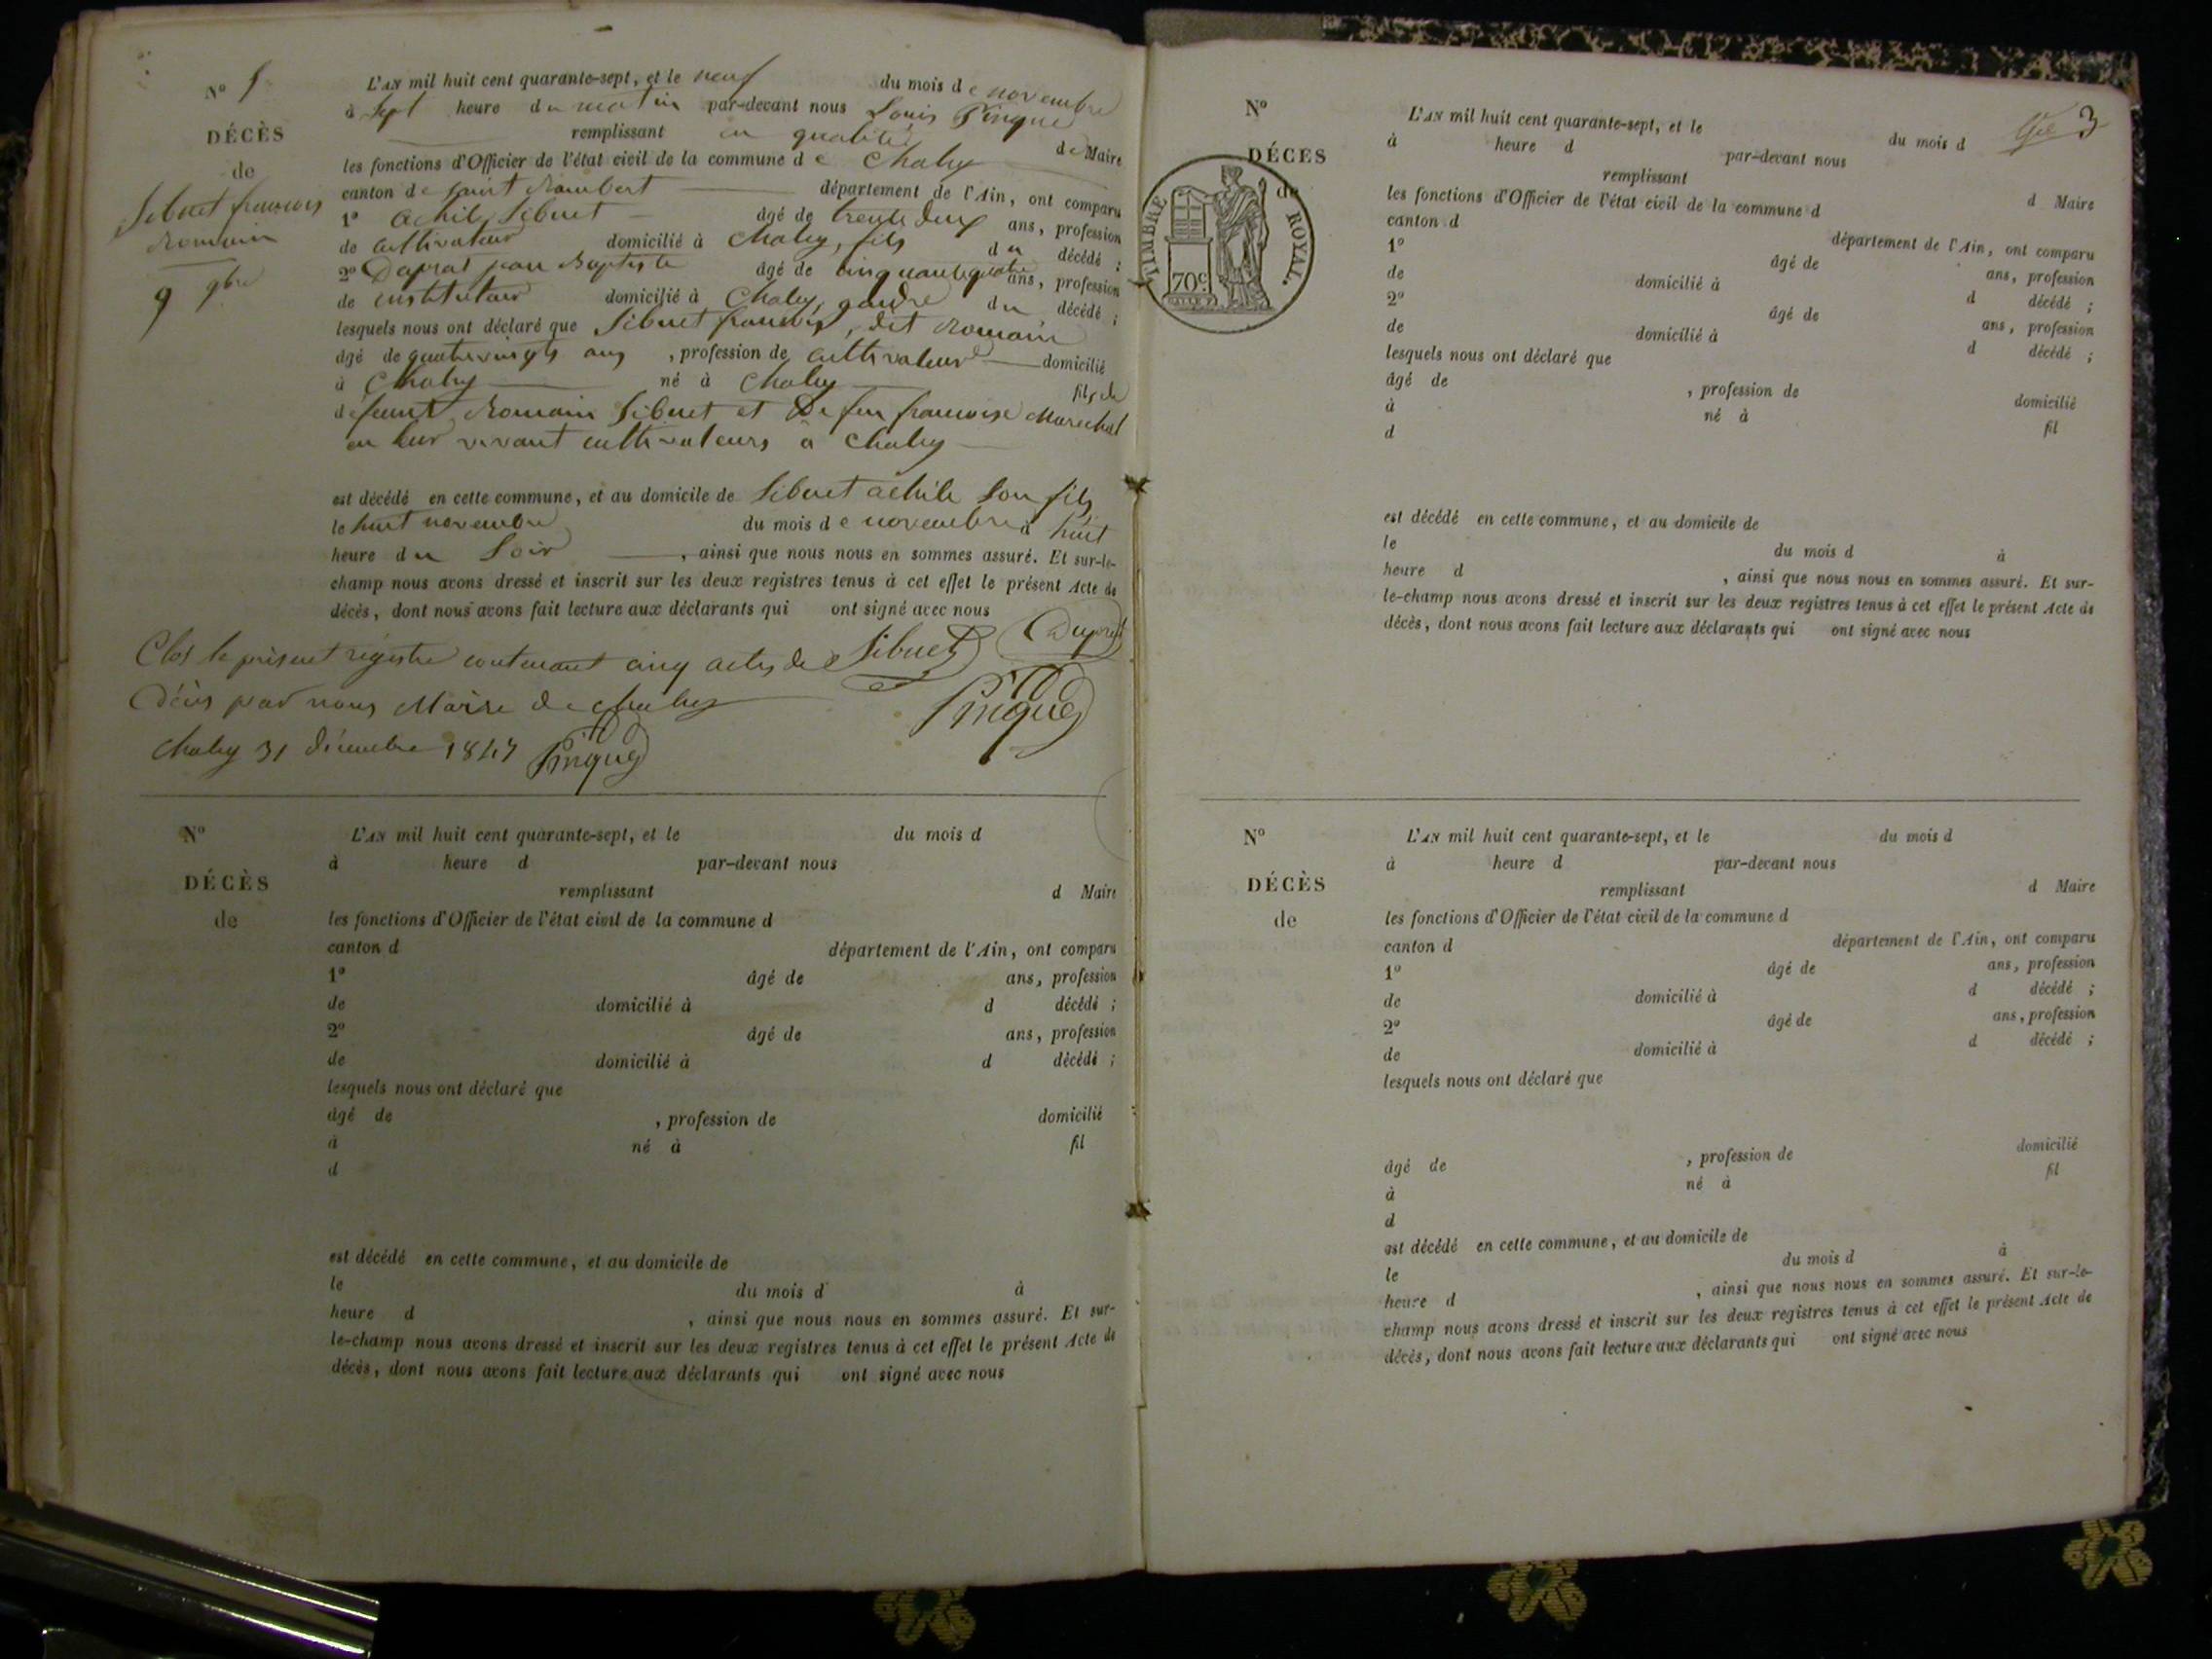 N° 5
DÉCÈS
de
Sibuet françois
Romain
9 9bre
L'AN mil huit cent quarante-sept, et le neuf du mois de novembre
à sept heure du matin par-devant nous Louis Pingue
remplissant en qualité de Maire
les fonctions d'Officier de l'état civil de la commune de Chaley
canton de saint Rambert département de l'Ain, ont comparu
1° achile Sibuet âgé de trente deux ans, profession
de cultivateur domicilié à Chaley, fils du décédé ;
2° Duprat jean Baptiste âgé de cinquante quatre ans, profession
de instituteur domicilié à Chaley, gendre du décédé ;
lesquels nous ont déclaré que Sibuet françois, dit Romain
âgé de quatrevingts ans, profession de cultivateur domicilié
à Chaley né à Chaley fils de
défunt Romain Sibuet et De feu francoise Marechal
en leur vivant cultivateurs à Chaley
est décédé en cette commune, et au domicile de Sibuet achile son fils
le huit novembre du mois de novembre à huit
heure du Soir, ainsi que nous nous en sommes assuré. Et sur-le-
champ nous avons dressé et inscrit sur les deux registres tenus à cet effet le présent Acte de
décès, dont nous avons fait lecture aux déclarants qui ont signé avec nous
Sibuet Duprat
Clos le présent régistre contenant cinq actes de
Décès par nous Maire de Chaley
Pingue
Chaley 31 décembre 1847 Pingue
N°
DÉCÈS
de
L'AN mil huit cent quarante-sept, et le du mois d
à heure d par-devant nous
remplissant d Maire
les fonctions d'Officier de l'état civil de la commune d
canton d département de l'Ain, ont comparu
1° âgé de ans, profession
de domicilié à d décédé ;
2° âgé de ans, profession
de domicilié à d décédé ;
lesquels nous ont déclaré que
âgé de , profession de domicilié
à né à fil
d
est décédé en cette commune, et au domicile de
le du mois d à
heure d , ainsi que nous nous en sommes assuré. Et sur-
le-champ nous avons dressé et inscrit sur les deux registres tenus à cet effet le présent Acte de
décès, dont nous avons fait lecture aux déclarants qui ont signé avec nous
3
N°
DÉCÈS
de
TIMBRE ROYAL.
70c
L'AN mil huit cent quarante-sept, et le du mois d
à heure d par-devant nous
remplissant d Maire
les fonctions d'Officier de l'état civil de la commune d
canton d département de l'Ain, ont comparu
1° âgé de ans, profession
de domicilié à d décédé ;
2° âgé de ans, profession
de domicilié à d décédé ;
lesquels nous ont déclaré que
âgé de , profession de domicilié
à né à fil
d
est décédé en cette commune, et au domicile de
le du mois d à
heure d , ainsi que nous nous en sommes assuré. Et sur-
le-champ nous avons dressé et inscrit sur les deux registres tenus à cet effet le présent Acte de
décès, dont nous avons fait lecture aux déclarants qui ont signé avec nous
N°
DÉCÈS
de
L'AN mil huit cent quarante-sept, et le du mois d
à heure d par-devant nous
remplissant d Maire
les fonctions d'Officier de l'état civil de la commune d
canton d département de l'Ain, ont comparu
1° âgé de ans, profession
de domicilié à d décédé ;
2° âgé de ans, profession
de domicilié à d décédé ;
lesquels nous ont déclaré que
âgé de , profession de domicilié
à né à fil
d
est décédé en cette commune, et au domicile de
le du mois d à
heure d , ainsi que nous nous en sommes assuré. Et sur-le-
champ nous avons dressé et inscrit sur les deux registres tenus à cet effet le présent Acte de
décès, dont nous avons fait lecture aux déclarants qui ont signé avec nous